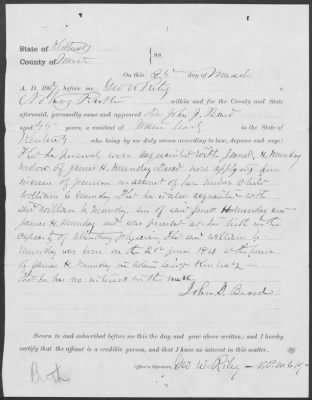 State of Kentucky
County of
SS.
On this 25 day of March
A. D. 186 , before me Geo W Riley
Notary Public within and for the County and State
aforesaid, personally came and appeared Dr John J. Beard
aged 45 years, a resident of County in the State of
Kentucky who being by me duly sworn according to law, deposes and says:
That he personally well acquainted with H. Munday
widow of James H. Munday Deceased now applying for
increase of pension on account of her minor child
William E. Munday That he is also acquainted with
said William E. Munday, son of said H Munday and
James H. Munday and was present at his birth in the
capacity of attending physician. That said William E.
Munday was born on the 20 June 1861 at the house
of James H. Munday in Adair County Kentucky
That he has no interest in this matter
John J. Beard
Sworn to and subscribed before me this the day and year above written; and I hereby
certify that the affiant is a credible person, and that I have no interest in this matter.
Officer's Signature, Geo. W. Riley
Birth